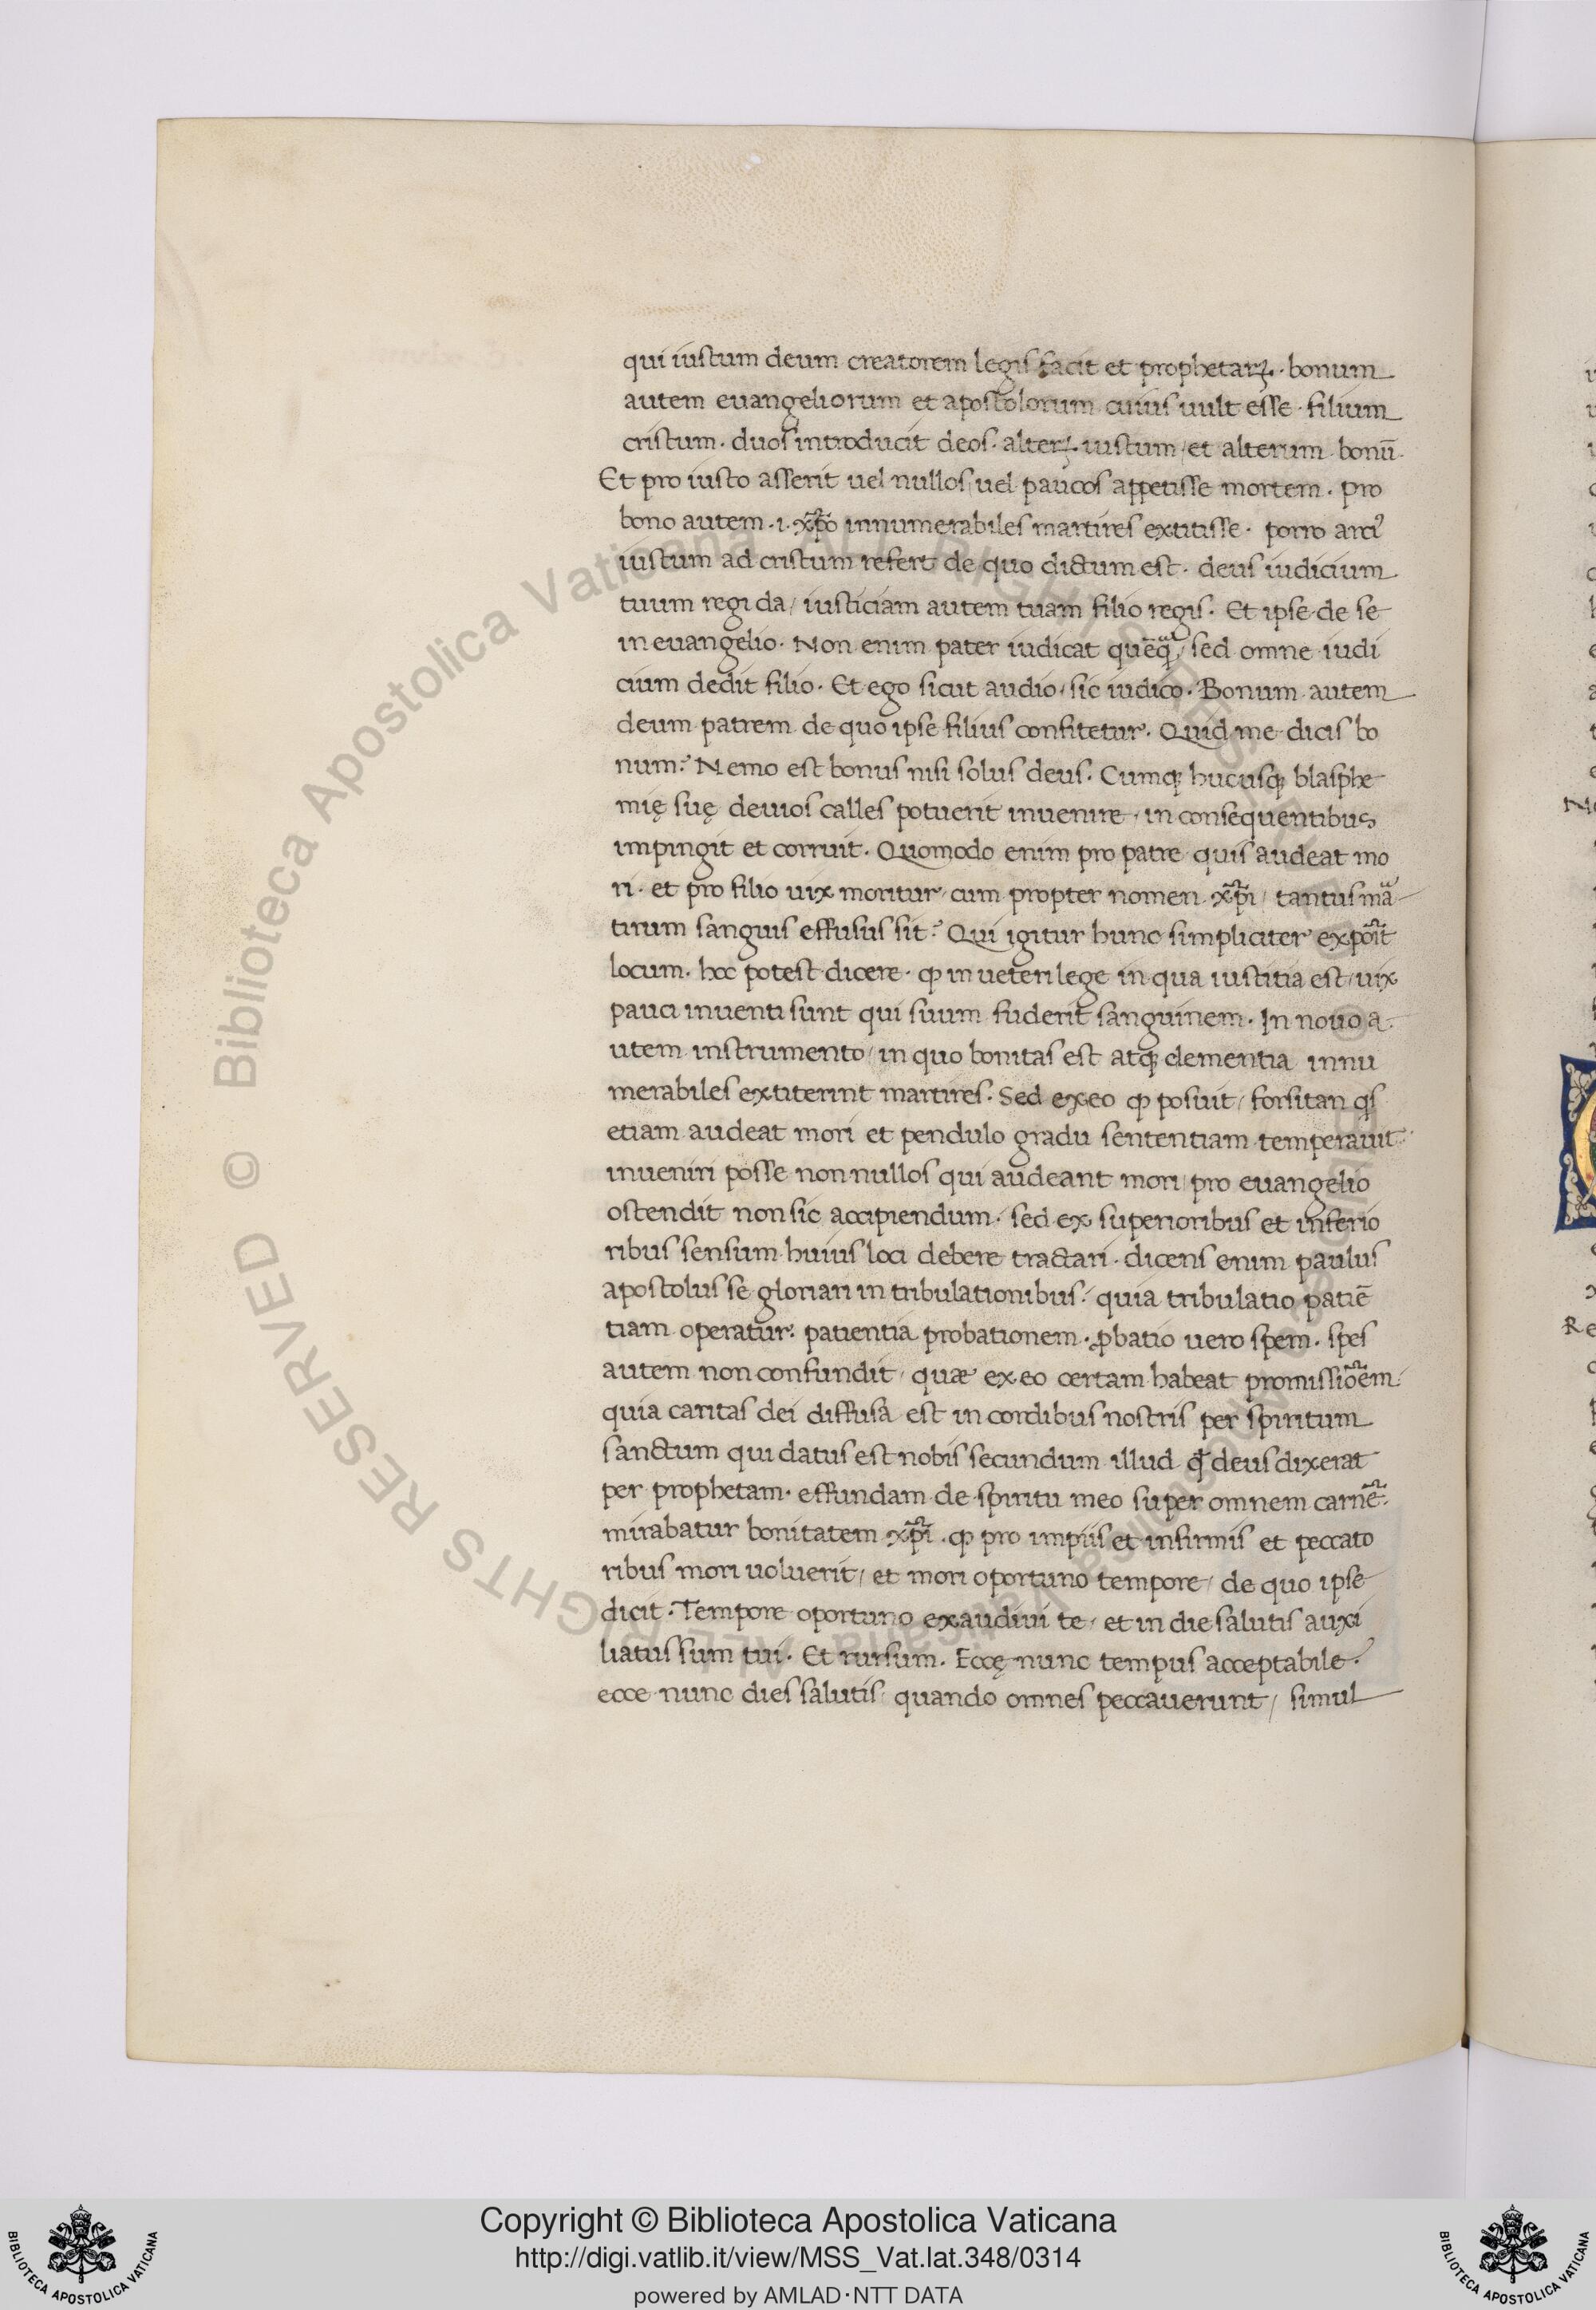 qui iustum deum creatorem legis facit et prophetaꝝ. bonum
autem euangeliorum et apostolorum cuius uult esse filium
cristum. duos introducit deos. alterꝝ. iustum / et alterum bonū.
Et pro iusto asserit uel nullos / uel paucos appetisse mortem. pro
bono autem .i. xp̄o innumerabiles martires extitisse. porro arriꝰ
iustum ad cristum refert de quo dictum est. deus iudicium
tuum regi da / iusticiam autem tuam filio regis. Et ipse de se
in euangelio. Non enim pater iudicat quēqᵃ / sed omne iudi
cium dedit filio. Et ego sicut audio / sic iudico. Bonum autem
deum patrem de quo ipse filius confitetur. Quid me dicis bo
num? Nemo est bonus nisi solus deus. Cumqꝫ hucusqꝫ blasphe
mię suę deuios calles potuerit inuenire / in consequentibus
impingit et corruit. Quomodo enim pro patre quis audeat mo
ri. et pro filio uix moritur / cum propter nomen xp̄i / tantus mā
tirum sanguis effusus sit? Qui igitur hunc simpliciter expōit
locum. hoc potest dicere. ꝙ in ueteri lege in qua iustitia est / uix
pauci inuenti sunt qui suum fuderit sanguinem. In nouo a
utem instrumento / in quo bonitas est atqꝫ clementia innu
merabiles extiterint martires. Sed ex eo ꝙ posuit / forsitan qⁱs
etiam audeat mori et pendulo gradu sententiam temperauit
inueniri posse non nullos qui audeant mori / pro euangelio
ostendit non sic accipiendum. sed ex superioribus et inferio
ribus sensum huius loci debere tractari. dicens enim paulus
apostolus se gloriari in tribulationibus. quia tribulatio patiē
tiam operatur: patientia probationem. ꝓbatio uero spem. spes
autem non confundit / quæ ex eo certam habeat promissiōem.
quia caritas dei diffusa est in cordibus nostris per spiritum
sanctum qui datus est nobis secundum illud qđ deus dixerat
per prophetam. effundam de spiritu meo super omnem carnē.
mirabatur bonitatem xp̄i. ꝙ pro impiis et infirmis et peccato
ribus mori uoluerit / et mori oportuno tempore / de quo ipse
dicit. Tempore oportuno exaudiui te / et in die salutis auxi
liatus sum tui. Et rursum. Eccę nunc tempus acceptabile.
ecce nunc dies salutis quando omnes peccauerunt / simul
Copyright © Biblioteca Apostolica Vaticana
http://digi.vatlib.it/view/MSS_Vat.lat.348/0314
powered by AMLAD·NTT DATA